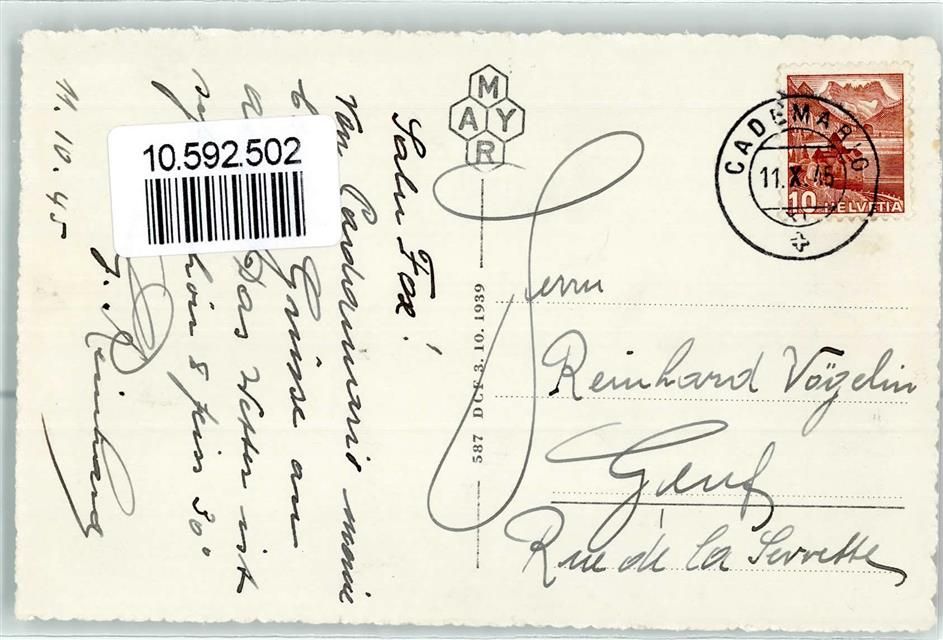 Salu Fox!
Von Cademario meine
Grüsse an
Das Wetter ist
schön 8 hin 30°
J. Reinhard
11. 10. 45
10.592.502
MAYR
587 DCF 3.10.1939
CADEMARIO
11.X.45
10 HELVETIA
Herrn
Reinhard Vögelin
Genf
Rue de la Servette